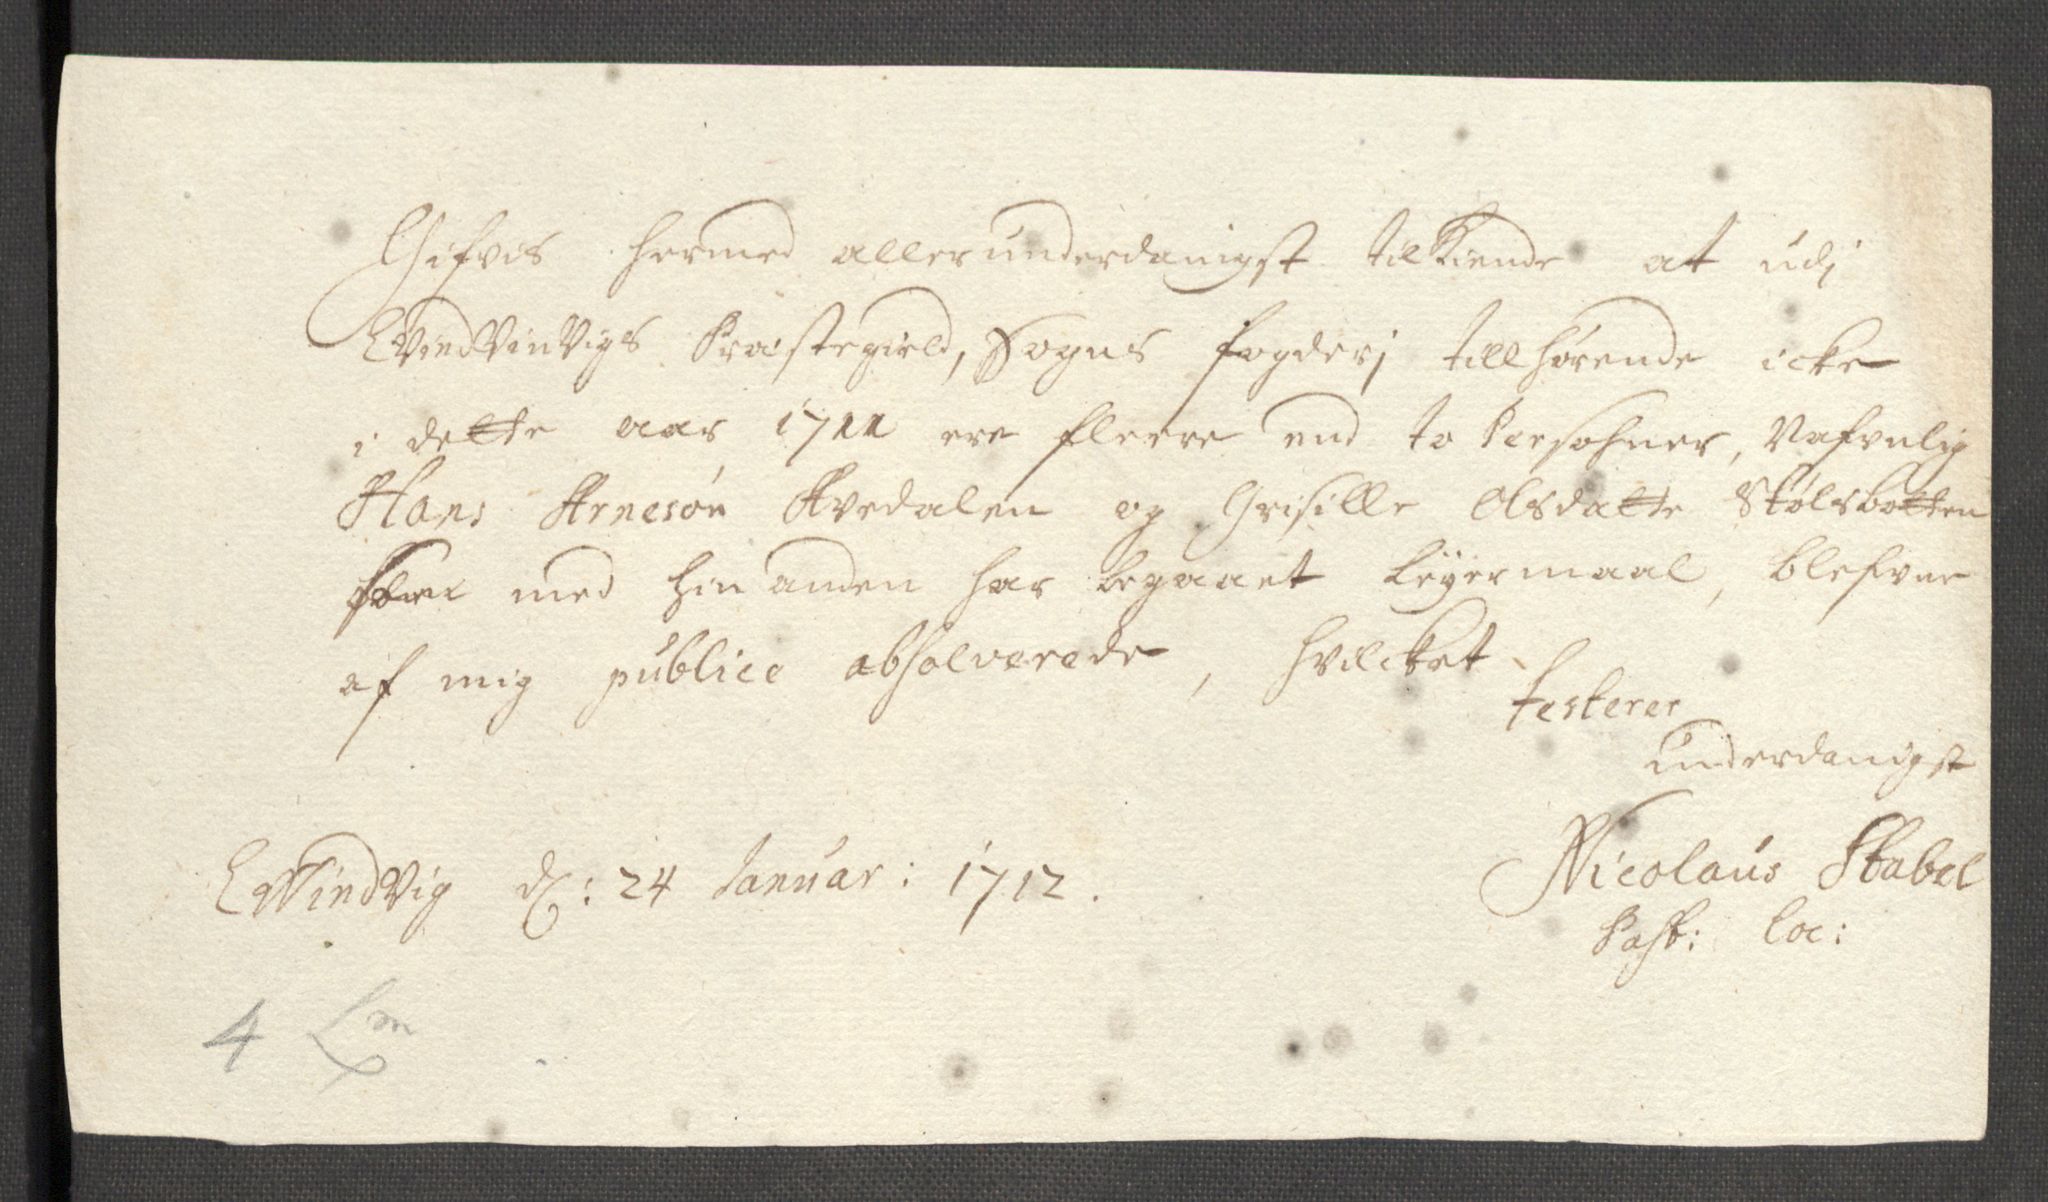 Gifvis hermed allerunderdanigst tilkiende at udj
EvindVinVigs Præstegield, Sogns fogderj tillhørende icke
i dette aar 1711 ere fleere end to Persohner, Nafvnlig
Hans Arnesøn Avedalen og Grisille Olsdatte Stølsbotten
med hin anden har begaaet Leyermaal, blefvne
af mig publice absolverede, hvilcket
testerer
underdanigst
EvindVig d: 24 Januar: 1712.
Nicolaus Stabel
Past: loc:
4 Lm